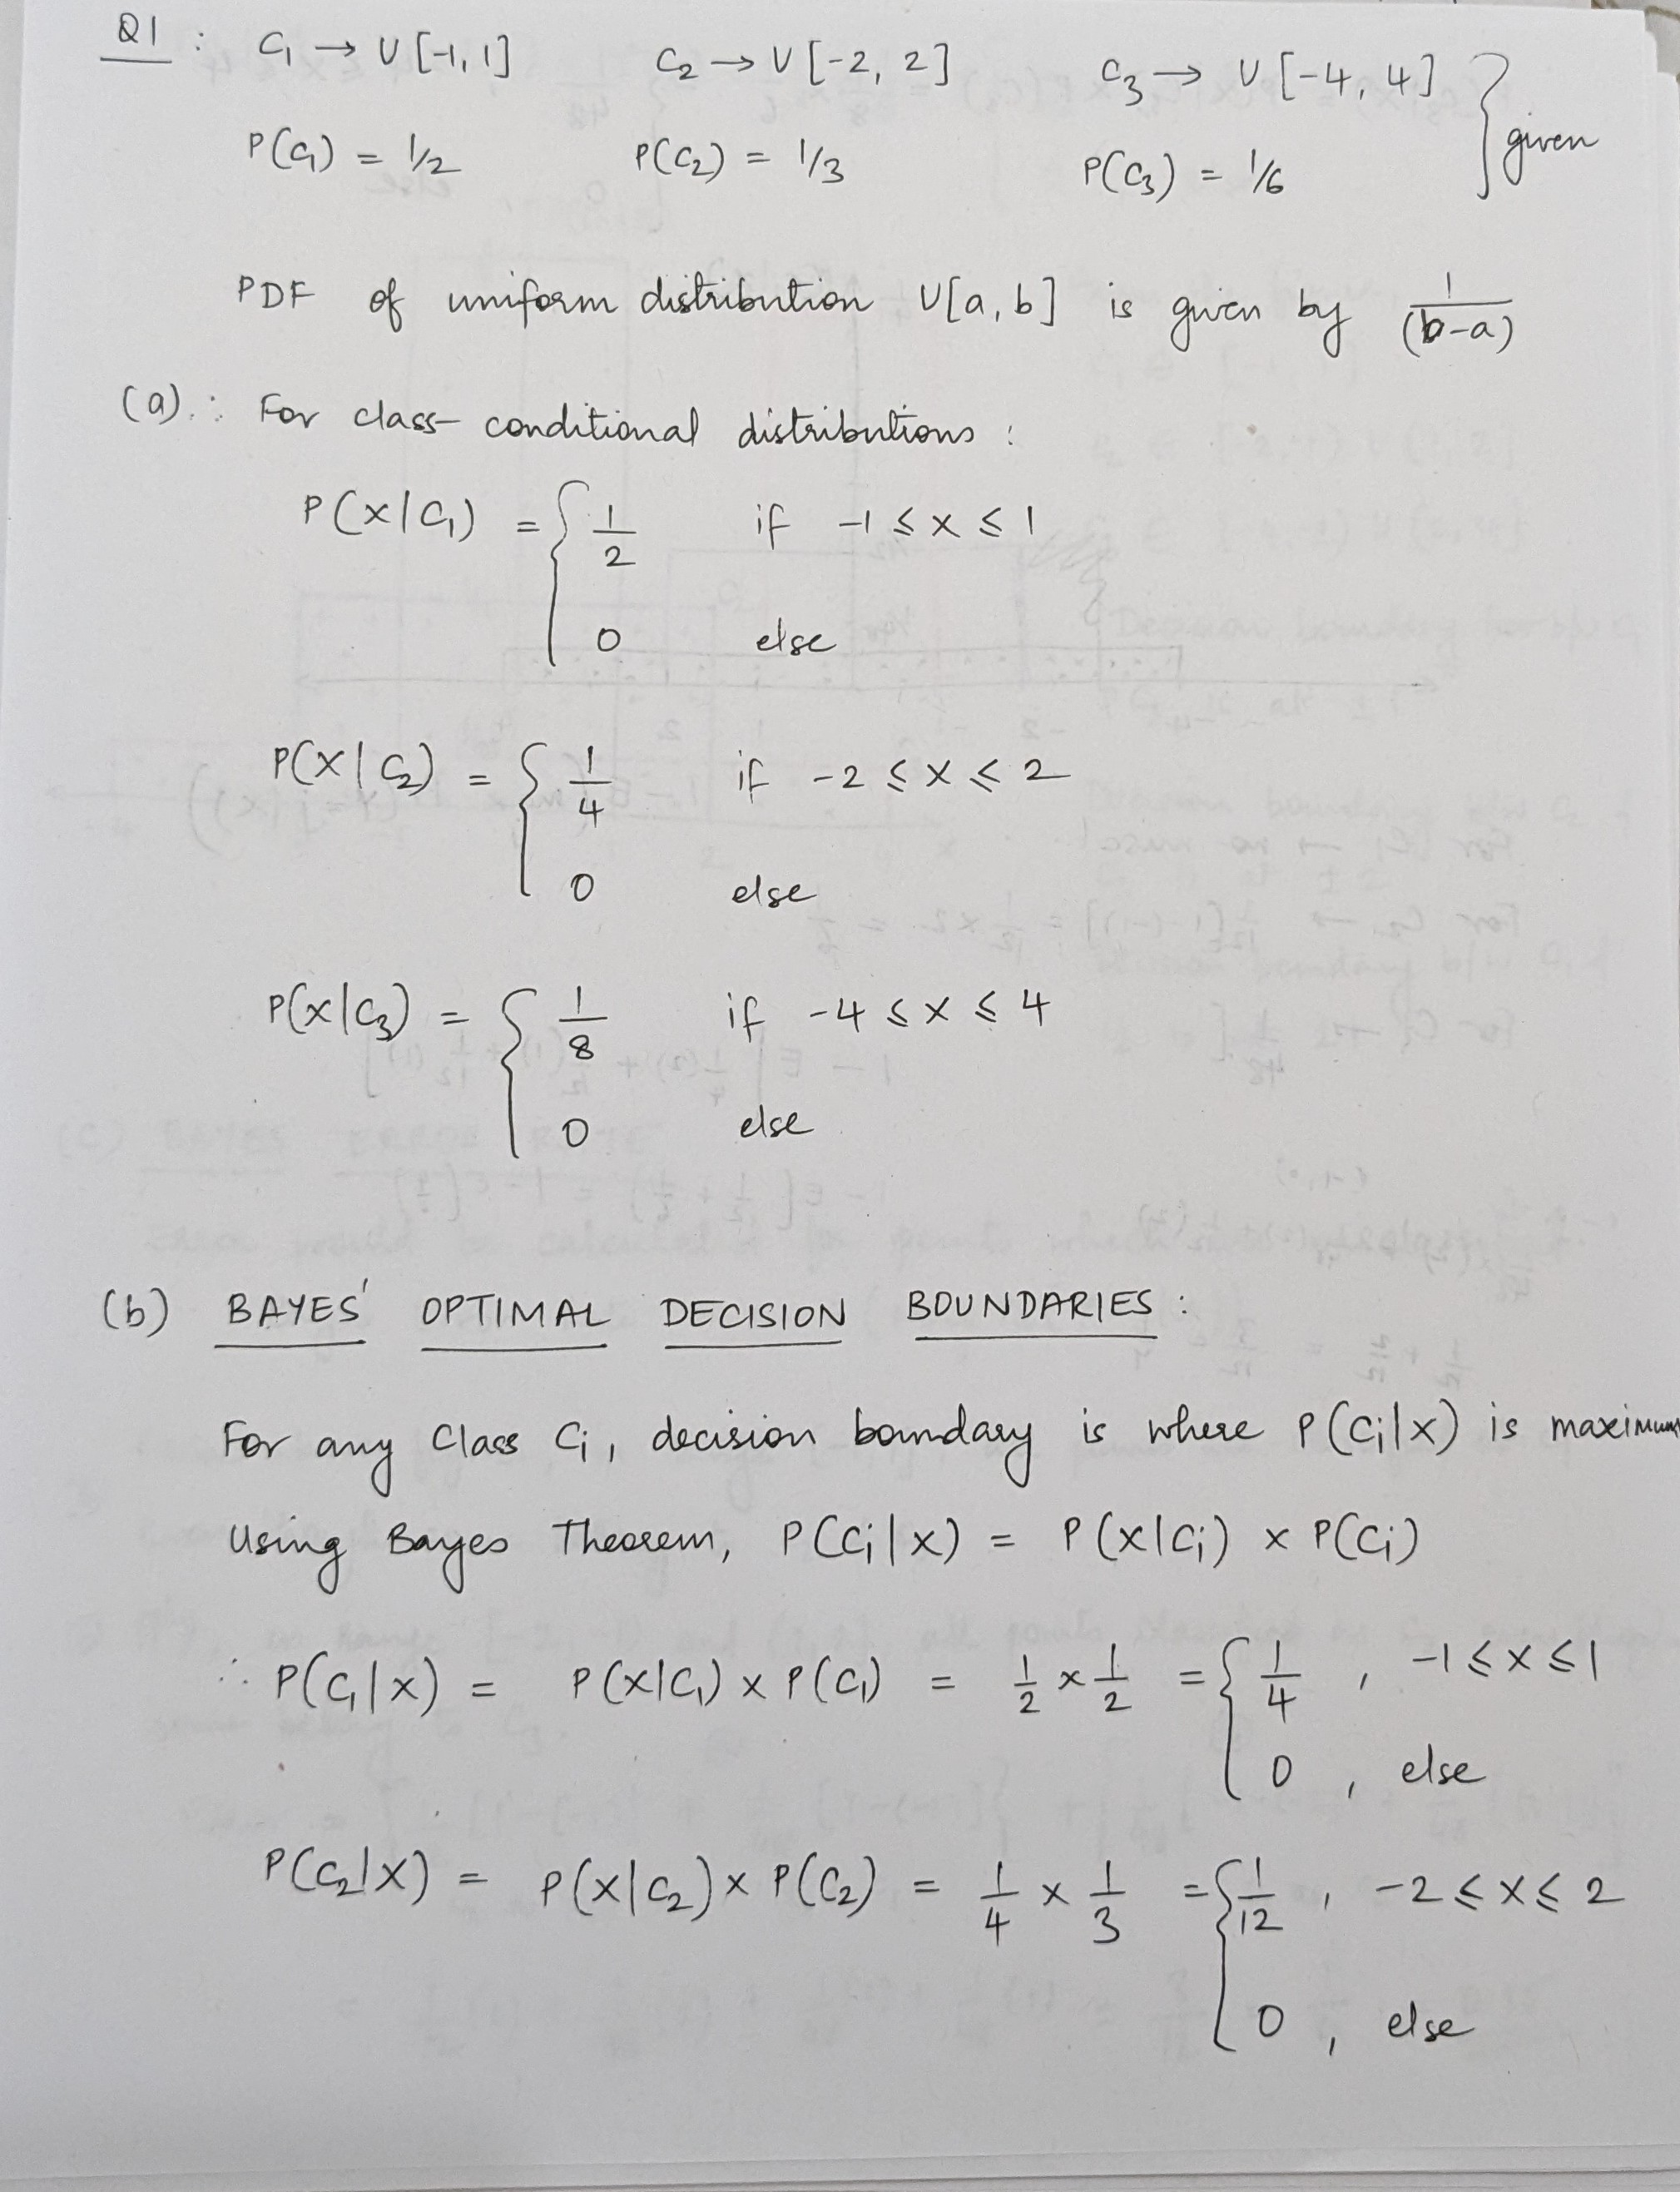 Q1 : C₁ → U[-1, 1] C₂ → U[-2, 2] C₃ → U[-4, 4] } given
P(C₁) = 1/2 P(C₂) = 1/3 P(C₃) = 1/6
PDF of uniform distribution U[a, b] is given by 1/(b-a)
(a) ∴ For class-conditional distributions :
P(x|C₁) = { 1/2 if -1 ≤ x ≤ 1
0 else
P(x|C₂) = { 1/4 if -2 ≤ x ≤ 2
0 else
P(x|C₃) = { 1/8 if -4 ≤ x ≤ 4
0 else
(b) BAYES' OPTIMAL DECISION BOUNDARIES :
For any Class Ci, decision boundary is where P(Ci|x) is maximum
Using Bayes Theorem, P(Ci|x) = P(x|Ci) x P(Ci)
∴ P(C₁|x) = P(x|C₁) x P(C₁) = 1/2 x 1/2 = { 1/4 , -1 ≤ x ≤ 1
0 , else
P(C₂|x) = P(x|C₂) x P(C₂) = 1/4 x 1/3 = { 1/12 , -2 ≤ x ≤ 2
0 , else